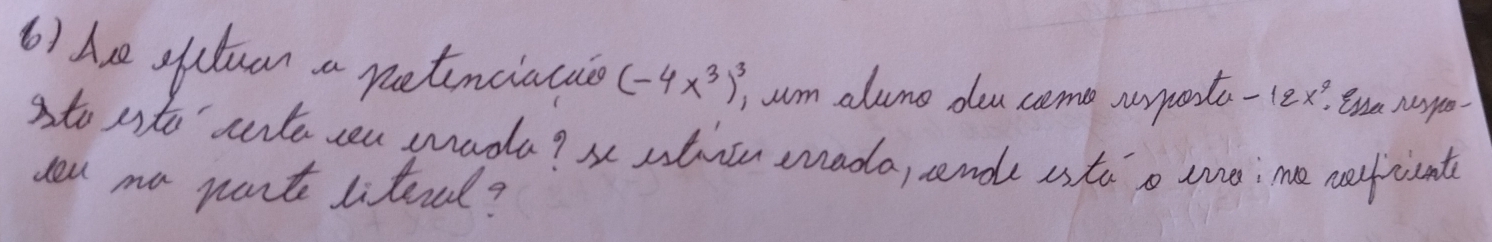 6) Ao efetuar a potenciação (-4x³)³, um aluno deu como resposta -12x⁹. Essa respo-
sta está certa ou errada? se estiver errada, onde está o erro: no coeficiente
ou na parte literal?